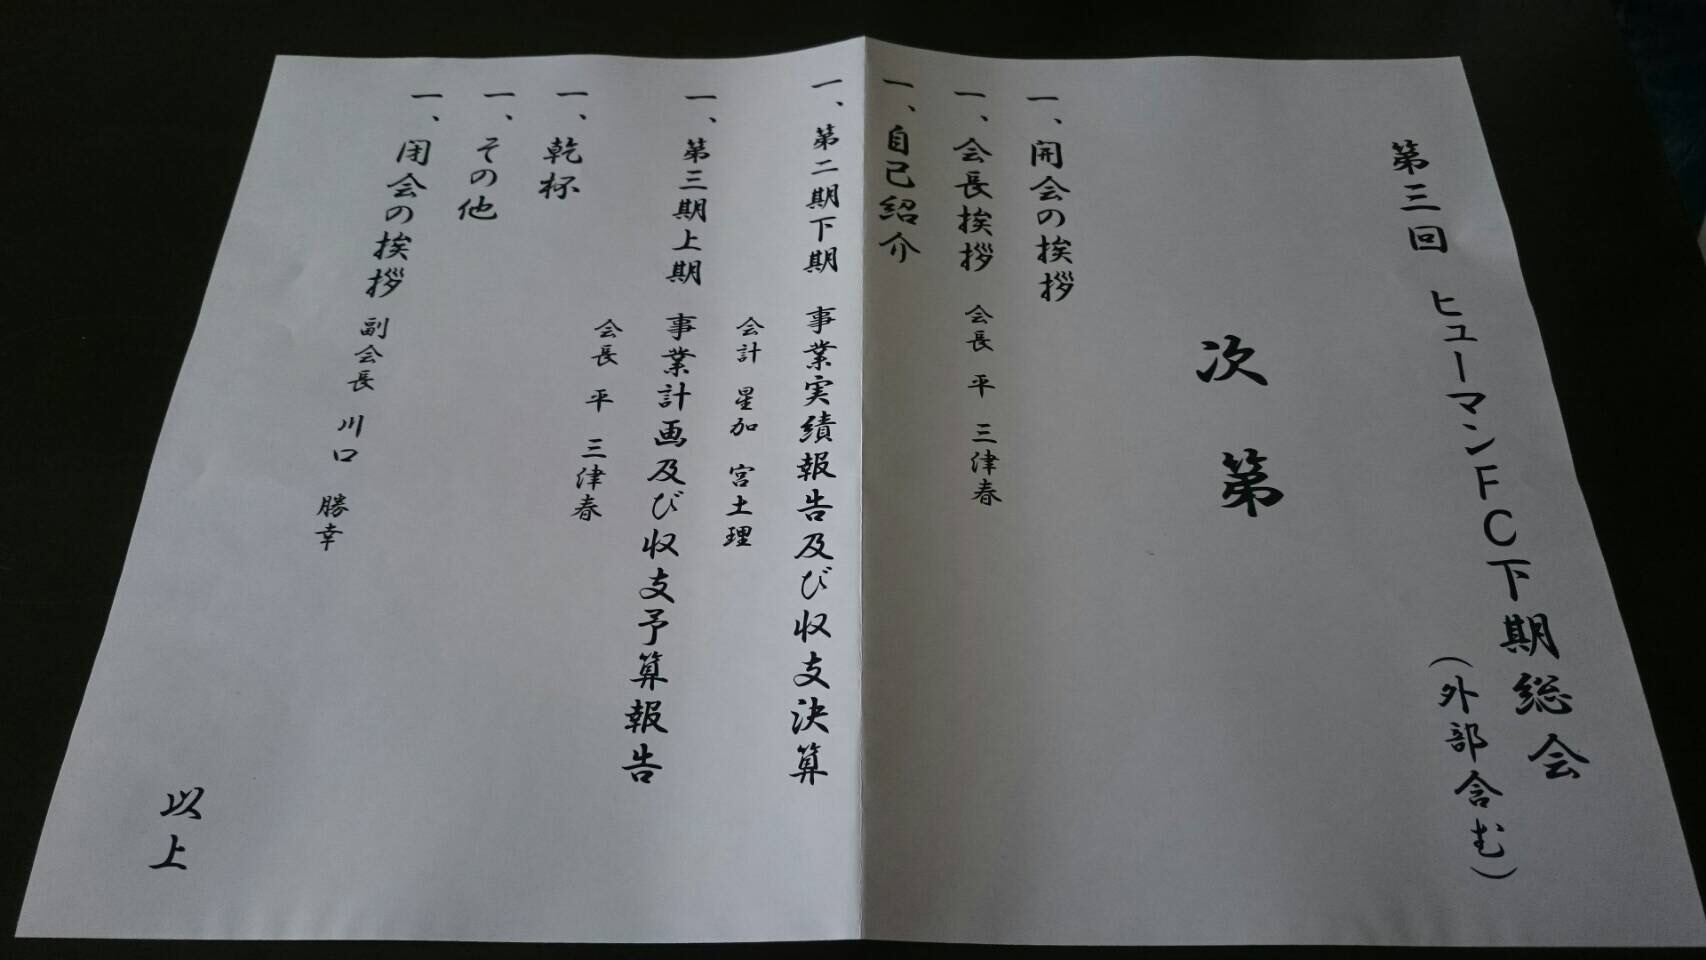 第三回 ヒューマンFC下期総会
(外部含む)
次第
一、開会の挨拶
一、会長挨拶 会長 平 三津春
一、自己紹介
一、第二期下期 事業実績報告及び収支決算
会計 星加 宮土理
一、第三期上期 事業計画及び収支予算報告
会長 平 三津春
一、乾杯
一、その他
一、閉会の挨拶 副会長 川口 勝幸
以上